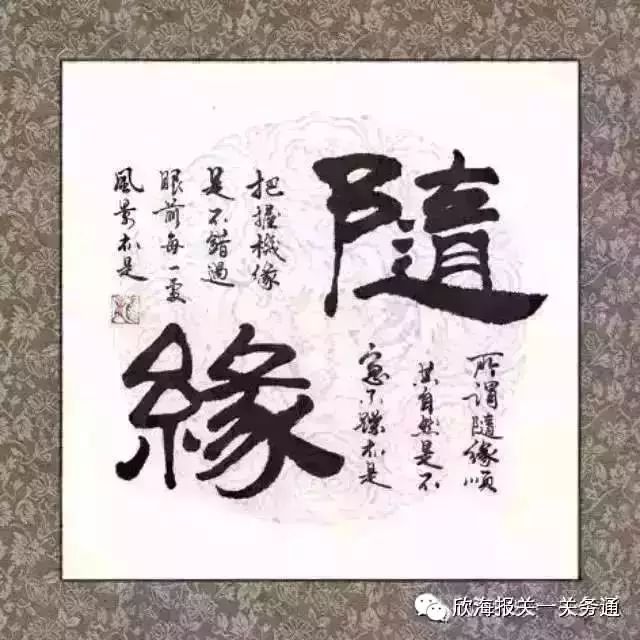 隨
緣
所謂隨緣順
其自然是不
不躁亦是
把握機緣
是不錯過
眼前每一處
風景亦是
欣海报关一关务通